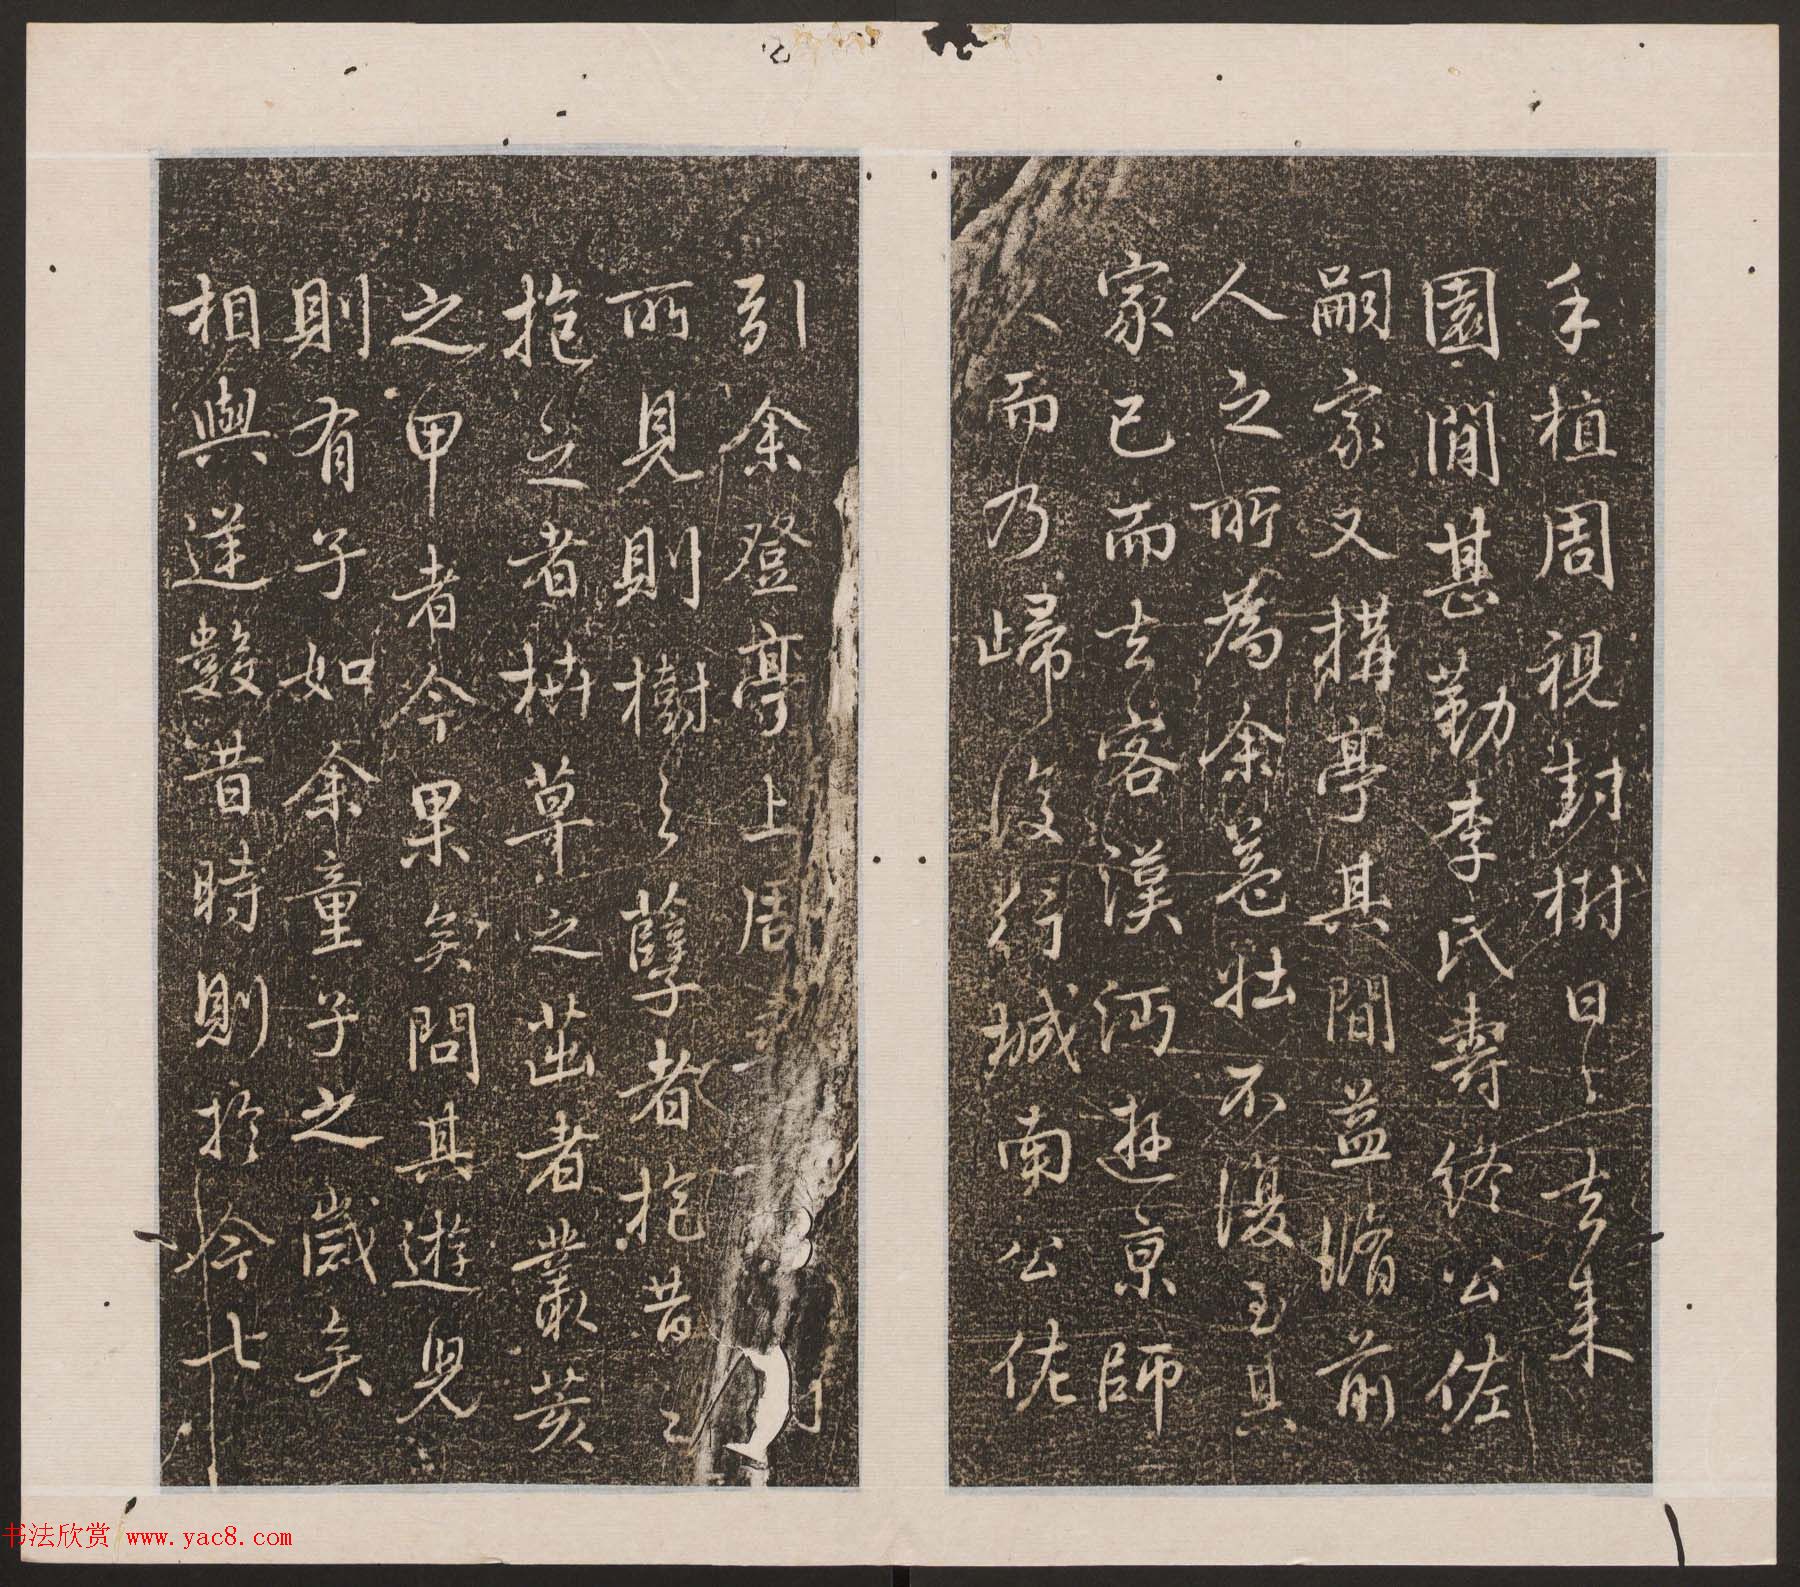 手植周視封樹日日去來
園閒甚勤李氏壽終公佐
嗣家又構亭其間益脩前
人之所為余益壯不復至其
家已而去客漢沔遊京師
久而乃歸復行城南公佐
引余登亭上周
所見則樹之孽者抱昔之
抱之者枿草之茁者叢荄
之甲者今果矣問其遊兒
則有子如余童子之歲矣
相與逆數昔時則於今七
书法欣赏 www.yac8.com